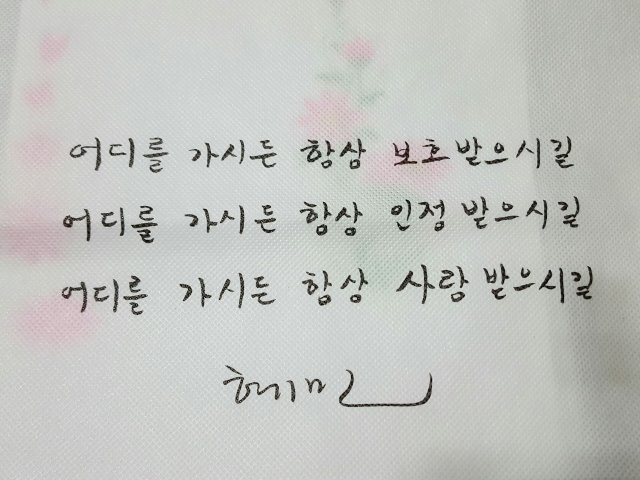 어디를 가시든 항상 보호받으시길
어디를 가시든 항상 인정 받으시길
어디를 가시든 항상 사랑 받으시길
혜민